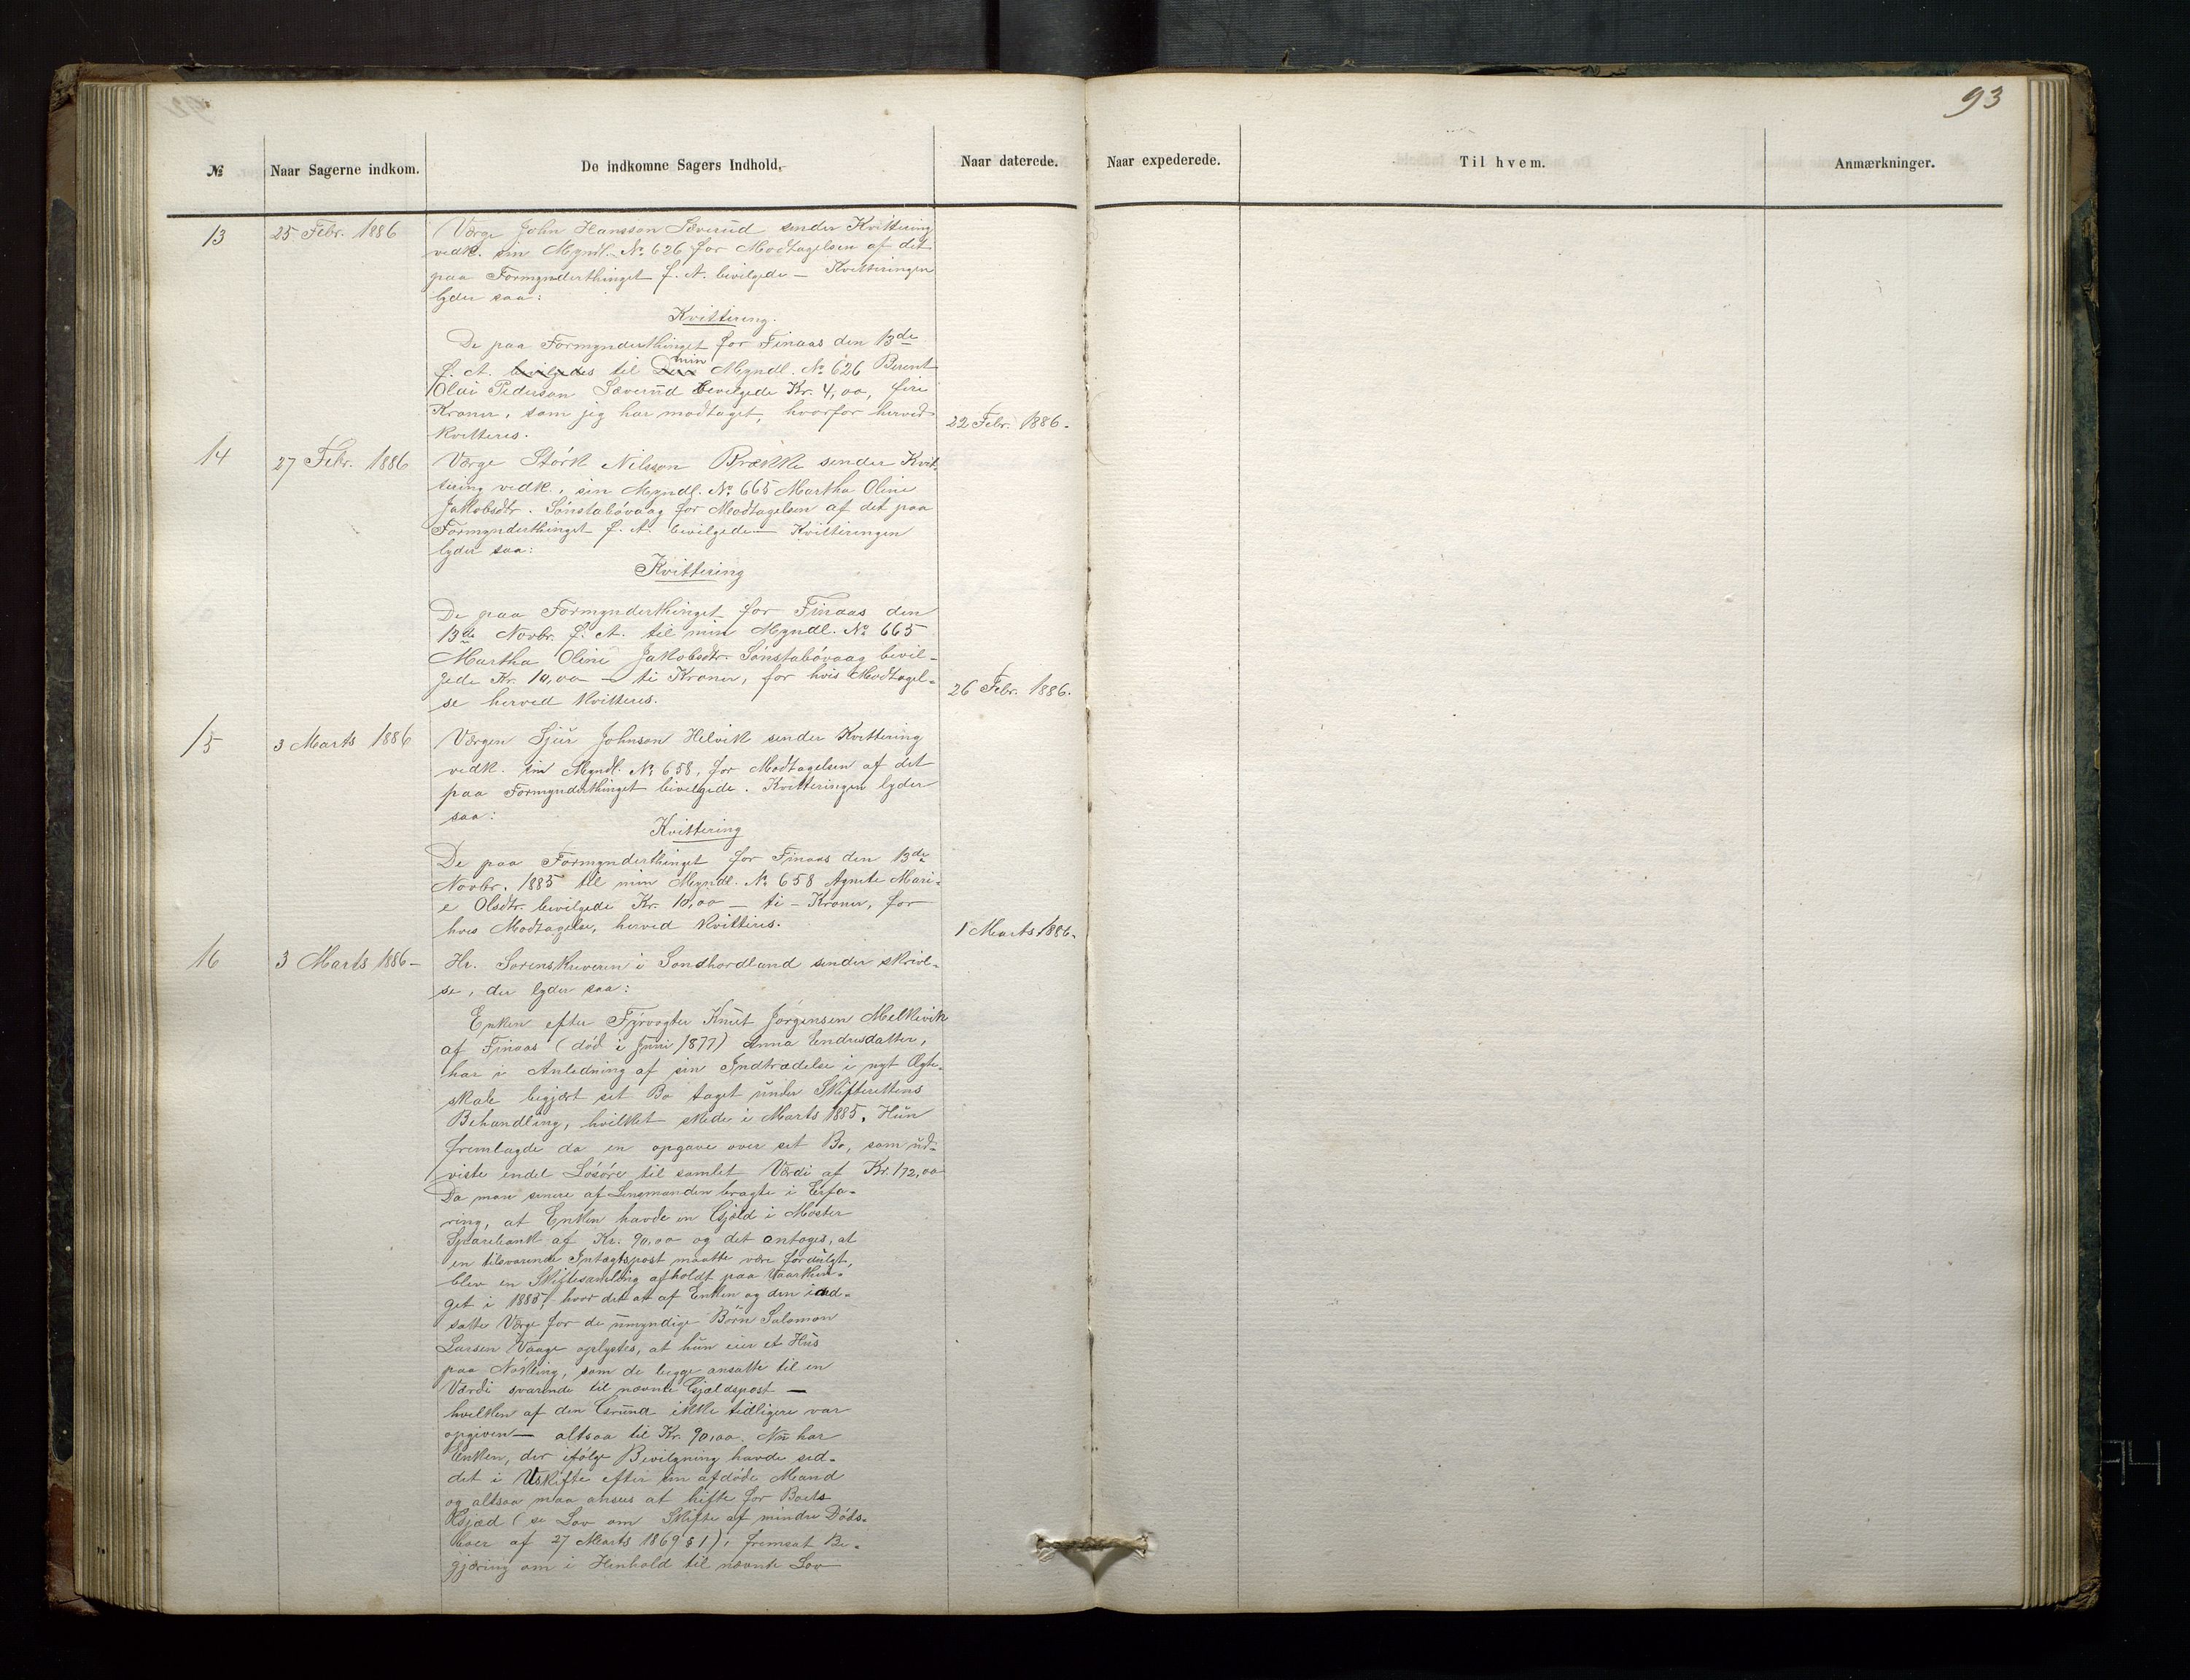 93
№ Naar Sagerne indkom. De indkomne Sagers Indhold. Naar daterede. Naar expederede. Til hvem. Anmærkninger.
13 25 Febr. 1886 Værge John Hansson Sæverud sender Kvittering
vedk. sin Myndl. No 626 for Modtagelsen af det
paa Formynderthinget f. A. bevilgede — Kvitteringen
lyder saa:
Kvittering.
De paa Formynderthinget for Finaas den 13de
f. A. bevilgedes til min Myndl. No 626 Berent
Olai Pederson Sæverud bevilgede Kr. 4,00, fire
Kroner, som jeg har modtaget, hvorfor herved
kvitteres. 22 Febr. 1886.
14 27 Febr. 1886 Værge Størk Nilsson Brække sender Kvit-
tering vedk., sin Myndl. No 665 Martha Oline
Jakobsdtr. Sønstabøvaag for Modtagelsen af det paa
Formynderthinget f. A. bevilgede — Kvitteringen
lyder saa:
Kvittering
De paa Formynderthinget for Finaas den
13de Novbr. f. A. til min Myndl. No 665
Martha Oline Jakobsdtr. Sønstabøvaag bevil-
gede Kr. 10,00 — ti Kroner, for hvis Modtagel-
se herved kvitteres. 26 Febr. 1886.
15 3 Marts 1886 Værgen Sjur Johnson Hilvik sender Kvittering
vedk. sin Myndl. No 658, for Modtagelsen af det
paa Formynderthinget bevilgede. Kvitteringen lyder
saa:
Kvittering
De paa Formynderthinget for Finaas den 13de
Novbr. 1885 til min Myndl. No 658 Agnete Mari-
e Olsdtr. bevilgede Kr. 10,00 — ti — Kroner, for
hvis Modtagelse, herved kvitteres. 1 Marts 1886.
16 3 Marts 1886 — Hr. Sorenskriveren i Søndhordland sender skrivel-
se, der lyder saa:
Enken efter Fyrvogter Knut Jørgensen Melkevik
af Finaas (død i Juni 1877) Anna Endresdatter,
har i Anledning af sin Indtrædelse i nyt Ægte-
skab begjært sit Bo taget under Skifterettens
Behandling, hvilket skede i Marts 1885. Hun
fremlagde da en opgave over sit Bo, som ud-
viste endel Løsøre til samlet Værdi af Kr. 172,00
Da man senere af Lensmanden bragte i Erfa-
ring, at Enken havde en Gjæld i Moster
Sparebank af Kr. 90,00 og det antoges, at
en tilsvarende Indtægtspost maatte være fordulgt,
blev en Skiftesamling afholdt paa Vaarthin-
get i 1885, hvor det at af Enken og den ind-
satte Værge for de umyndige Børn Salomon
Larsen Vaage oplystes, at hun eier et Hus
paa Nokling, som de begge ansatte til en
Værdi svarende til nævnte Gjældspost —
hvilken af den Grund ikke tidligere var
opgiven — altsaa til Kr. 90,00. Nu har
Enken, der ifølge Bevilgning havde sid-
det i Uskifte efter sin afdøde Mand
og altsaa maa anses at hifte for Boets
Gjæd (se Lov om Skifte af mindre Døds-
boer af 27 Marts 1869 § 1), fremsat Be-
gjæring om i Henhold til nævnte Lov